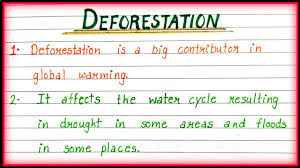 DEFORESTATION
1. Deforestation is a big contributor in
global warming.
2. It affects the water cycle resulting
in drought in some areas and floods
in some places.